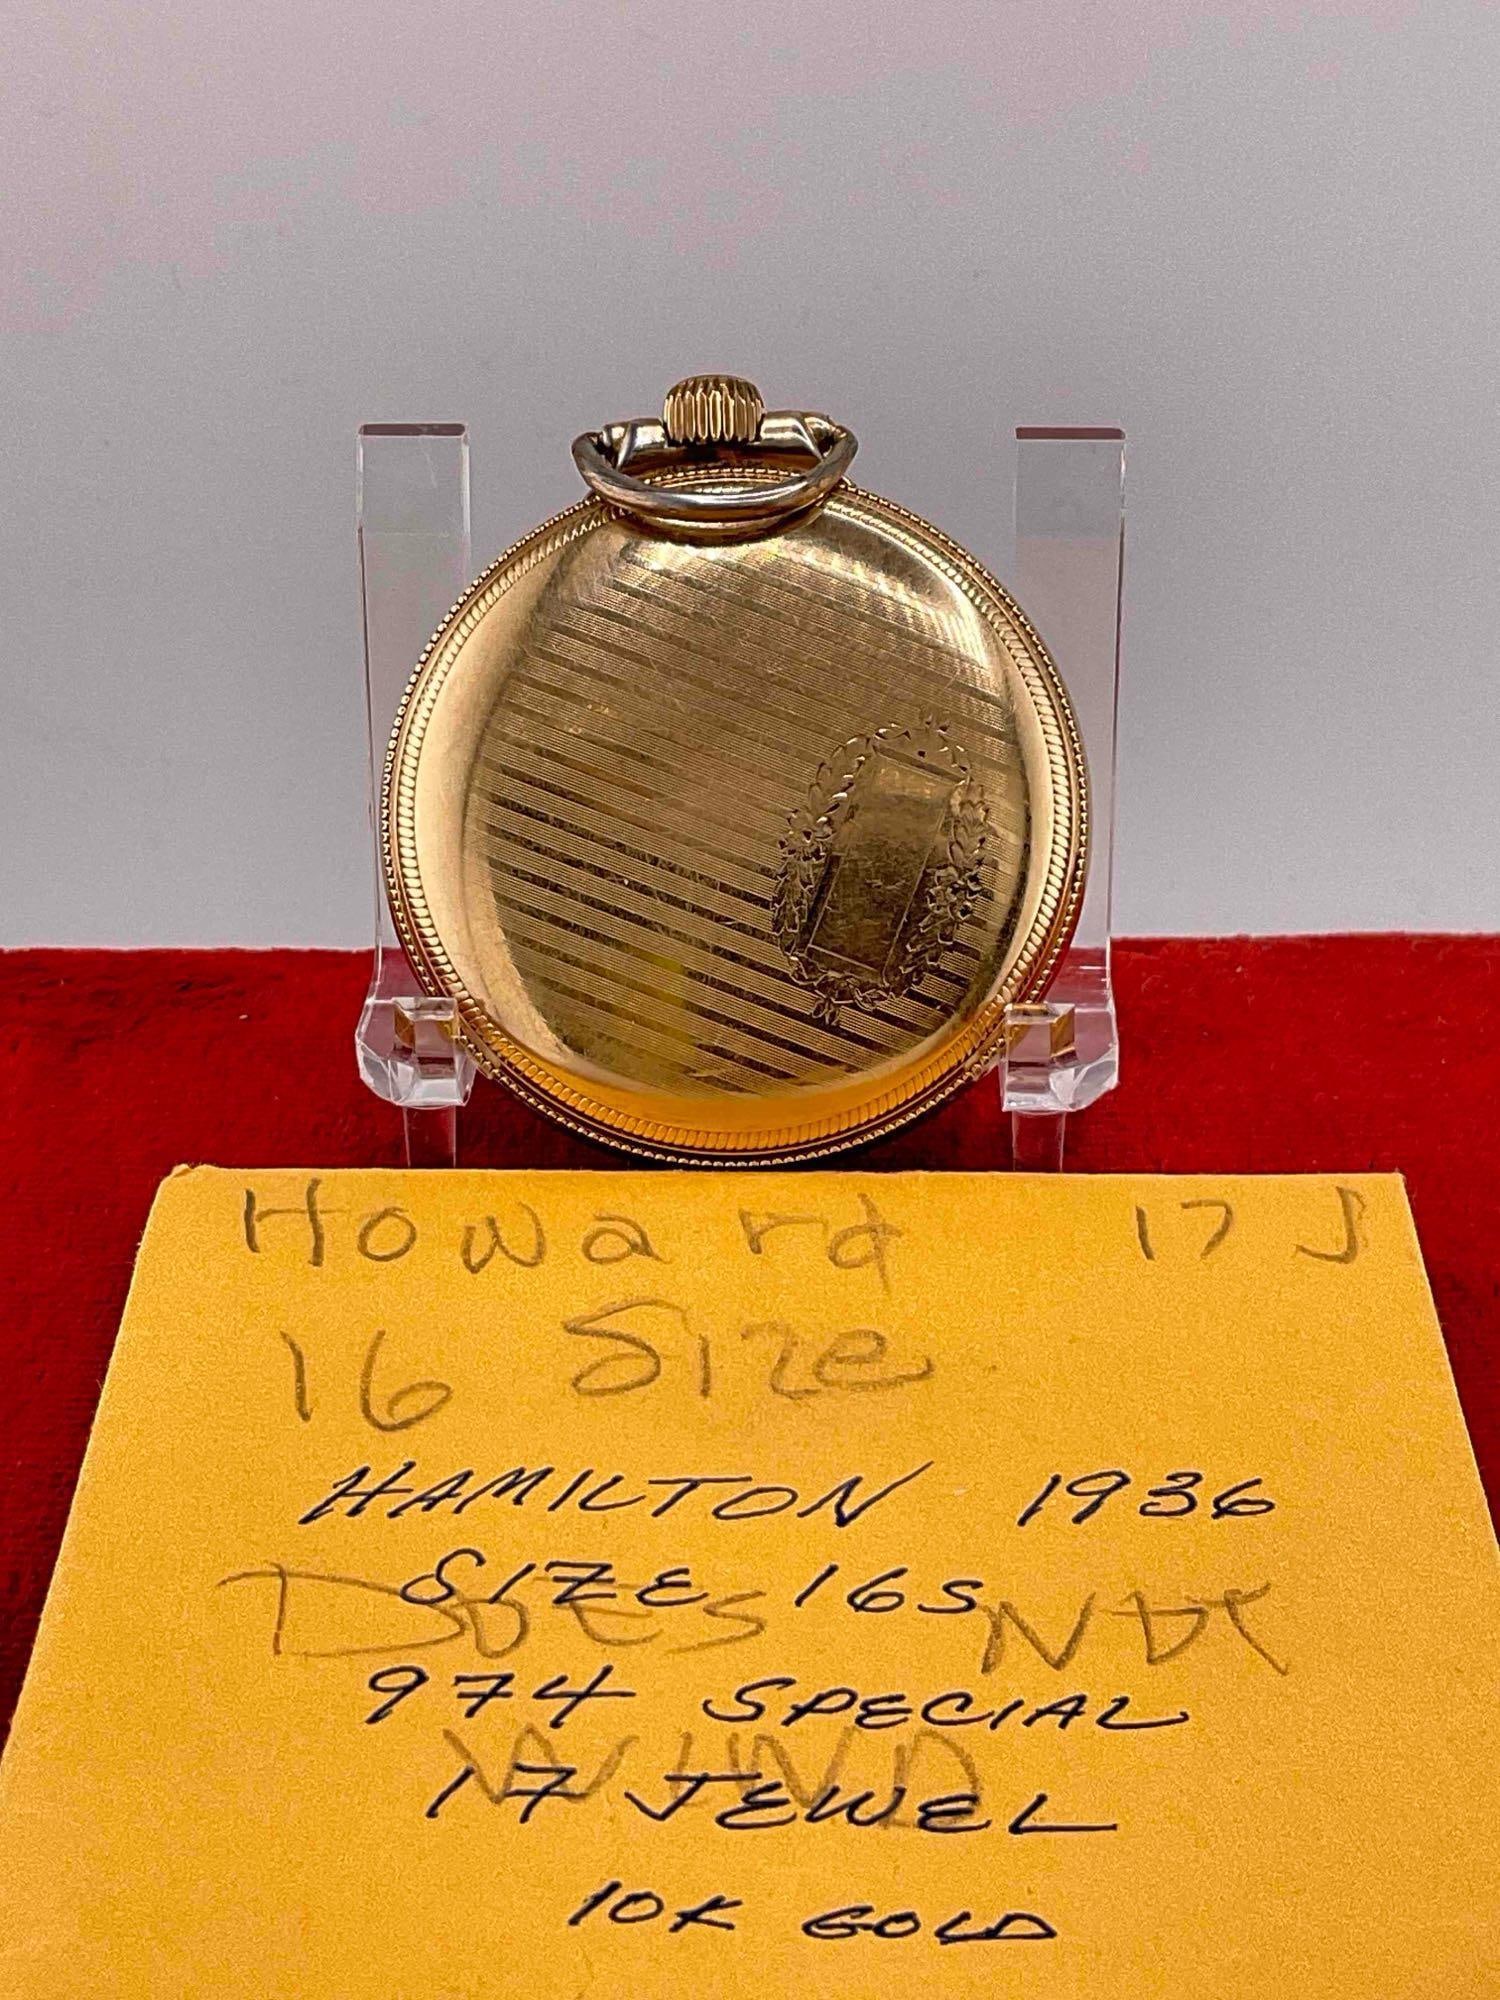 Howard 17 J
16 Size
HAMILTON 1936
SIZE 16S
DOES NOT
974 SPECIAL
WIND
17 JEWEL
10K GOLD